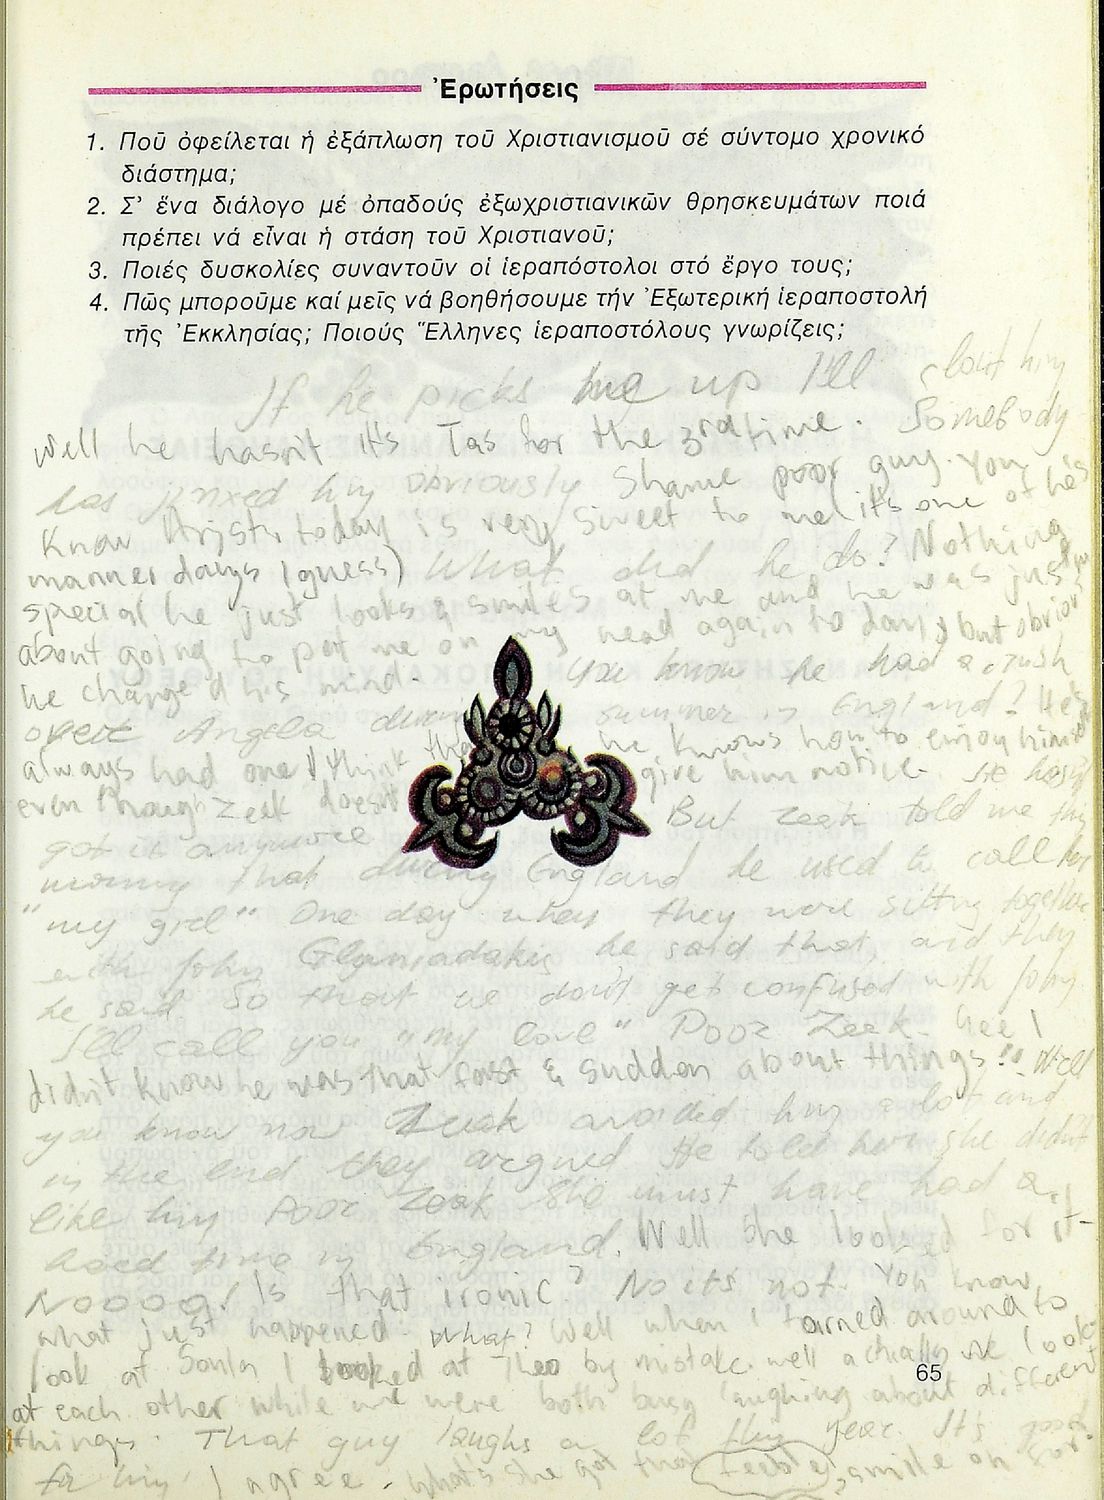 Ἐρωτήσεις
1. Ποῦ ὀφείλεται ἡ ἐξάπλωση τοῦ Χριστιανισμοῦ σέ σύντομο χρονικό
διάστημα;
2. Σ' ἕνα διάλογο μέ ὀπαδούς ἐξωχριστιανικῶν θρησκευμάτων ποιά
πρέπει νά εἶναι ἡ στάση τοῦ Χριστιανοῦ;
3. Ποιές δυσκολίες συναντοῦν οἱ ἱεραπόστολοι στό ἔργο τους;
4. Πῶς μποροῦμε καί μεῖς νά βοηθήσουμε τήν Ἐξωτερική ἱεραποστολή
τῆς Ἐκκλησίας; Ποιούς Ἕλληνες ἱεραποστόλους γνωρίζεις;
If he picks me up I'll clout him
Well he hasn't it's Tas for the 3rd time. Somebody
has jinxed him obviously Shame poor guy. You
know today is very sweet to me (it's one of his
manner days I guess) What did he do? Nothing
special he just looks & smiles at me and he was just
about going to pat me on my head again today but
he changed his mind. You know he had a crush
over Angela during summer in England? He's
always had one I think he knows how to enjoy himself
even though Zeek doesn't give him notice. He hasn't
got it anymore But Zeek told me this
morning that during England he used to call her
"my girl" One day when they were sitting together
with John he said that, and then
he said So that we don't get confused with John
I'll call you "my love" Poor Zeek. Gee I
didn't know he was that fast & sudden about things!! Well
you know now Zeek avoided him a lot and
in the end they argued He told her she didn't
like him Poor Zeek she must have had a
hard time in England. Well she looked for it -
Noooo! Is that ironic? No it's not. You know
what just happened. What? Well when I turned around to
look at Soula I looked at Theo by mistake. well actually we look
at each other while we were both busy laughing about different
things. That guy laughs a lot this year. It's good
for him I agree. What's she got that smile on for.
65